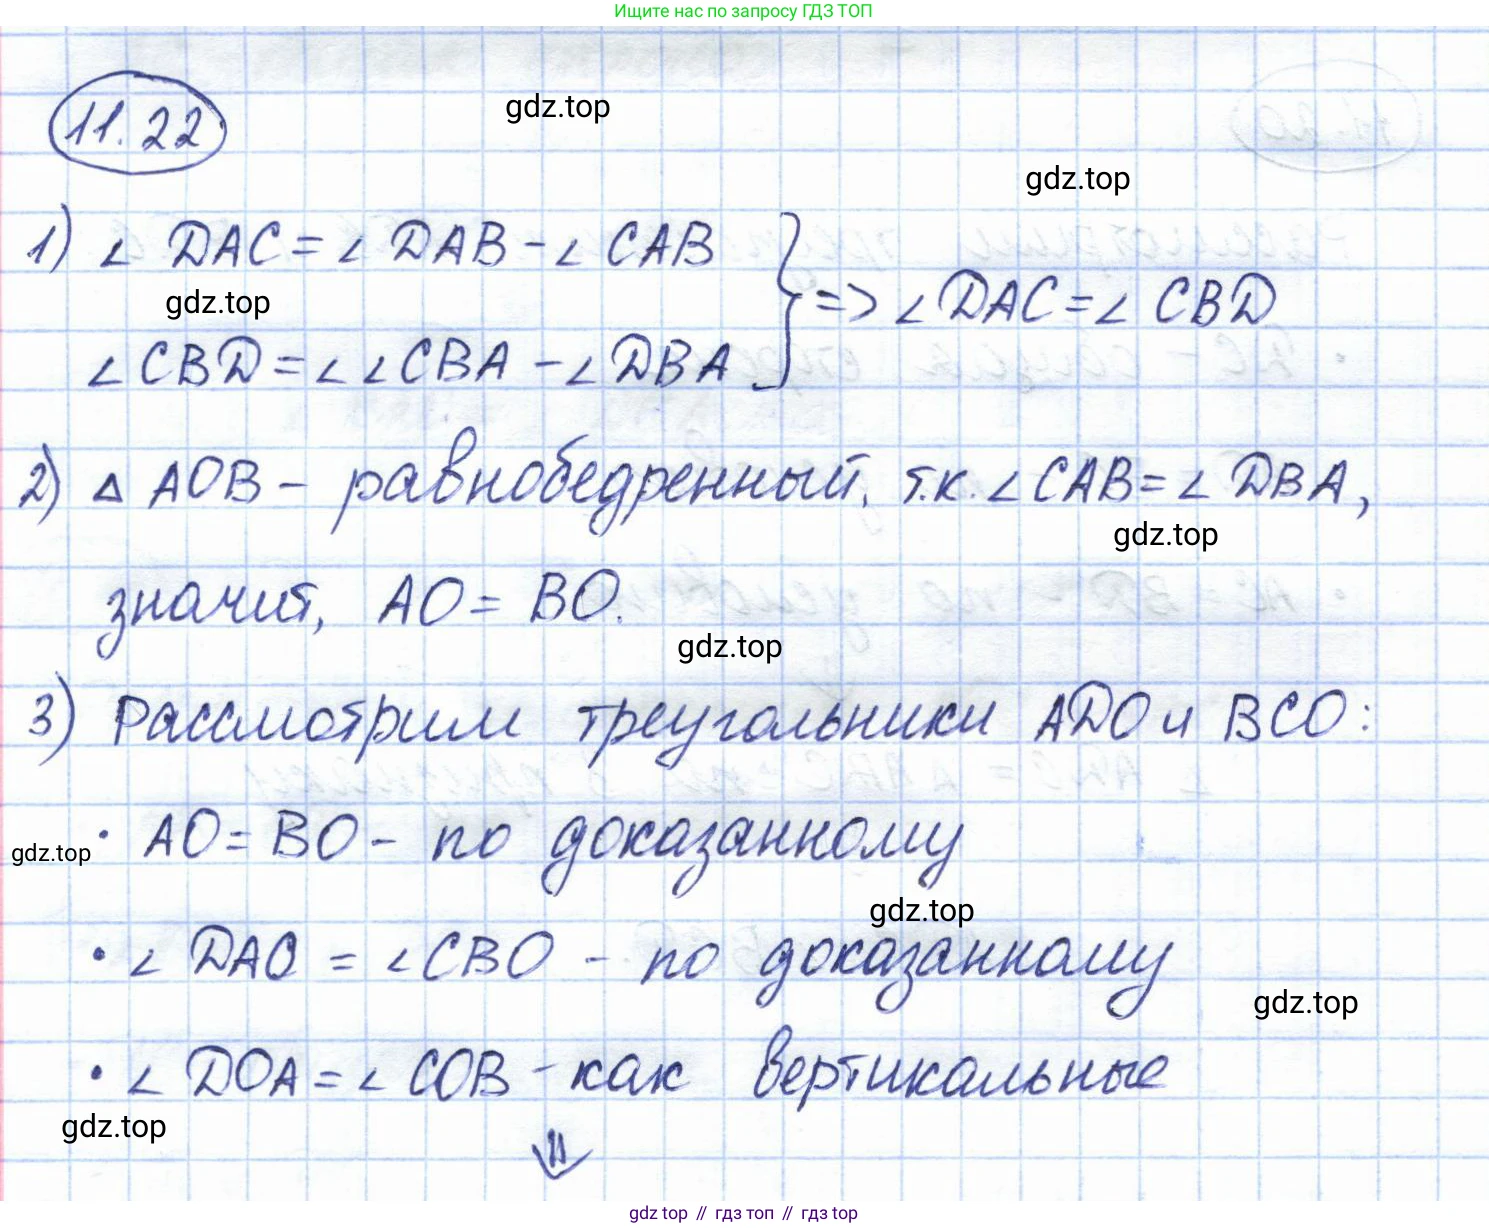 Ищите нас по запросу ГДЗ ТОП
11.22
gdz.top
gdz.top
1) ∠ DAC = ∠ DAB - ∠ CAB
gdz.top
} => ∠ DAC = ∠ CBD
∠ CBD = ∠ ∠ CBA - ∠ DBA
2) Δ AOB - равнобедренный, т.к. ∠ CAB = ∠ DBA,
gdz.top
значит, AO = BO.
gdz.top
3) Рассмотрим треугольники ADO и BCO:
gdz.top
· AO = BO - по доказанному
gdz.top
· ∠ DAO = ∠ CBO - по доказанному
gdz.top
· ∠ DOA = ∠ COB - как вертикальные
gdz.top
⇓
gdz top // гдз топ // гдз top